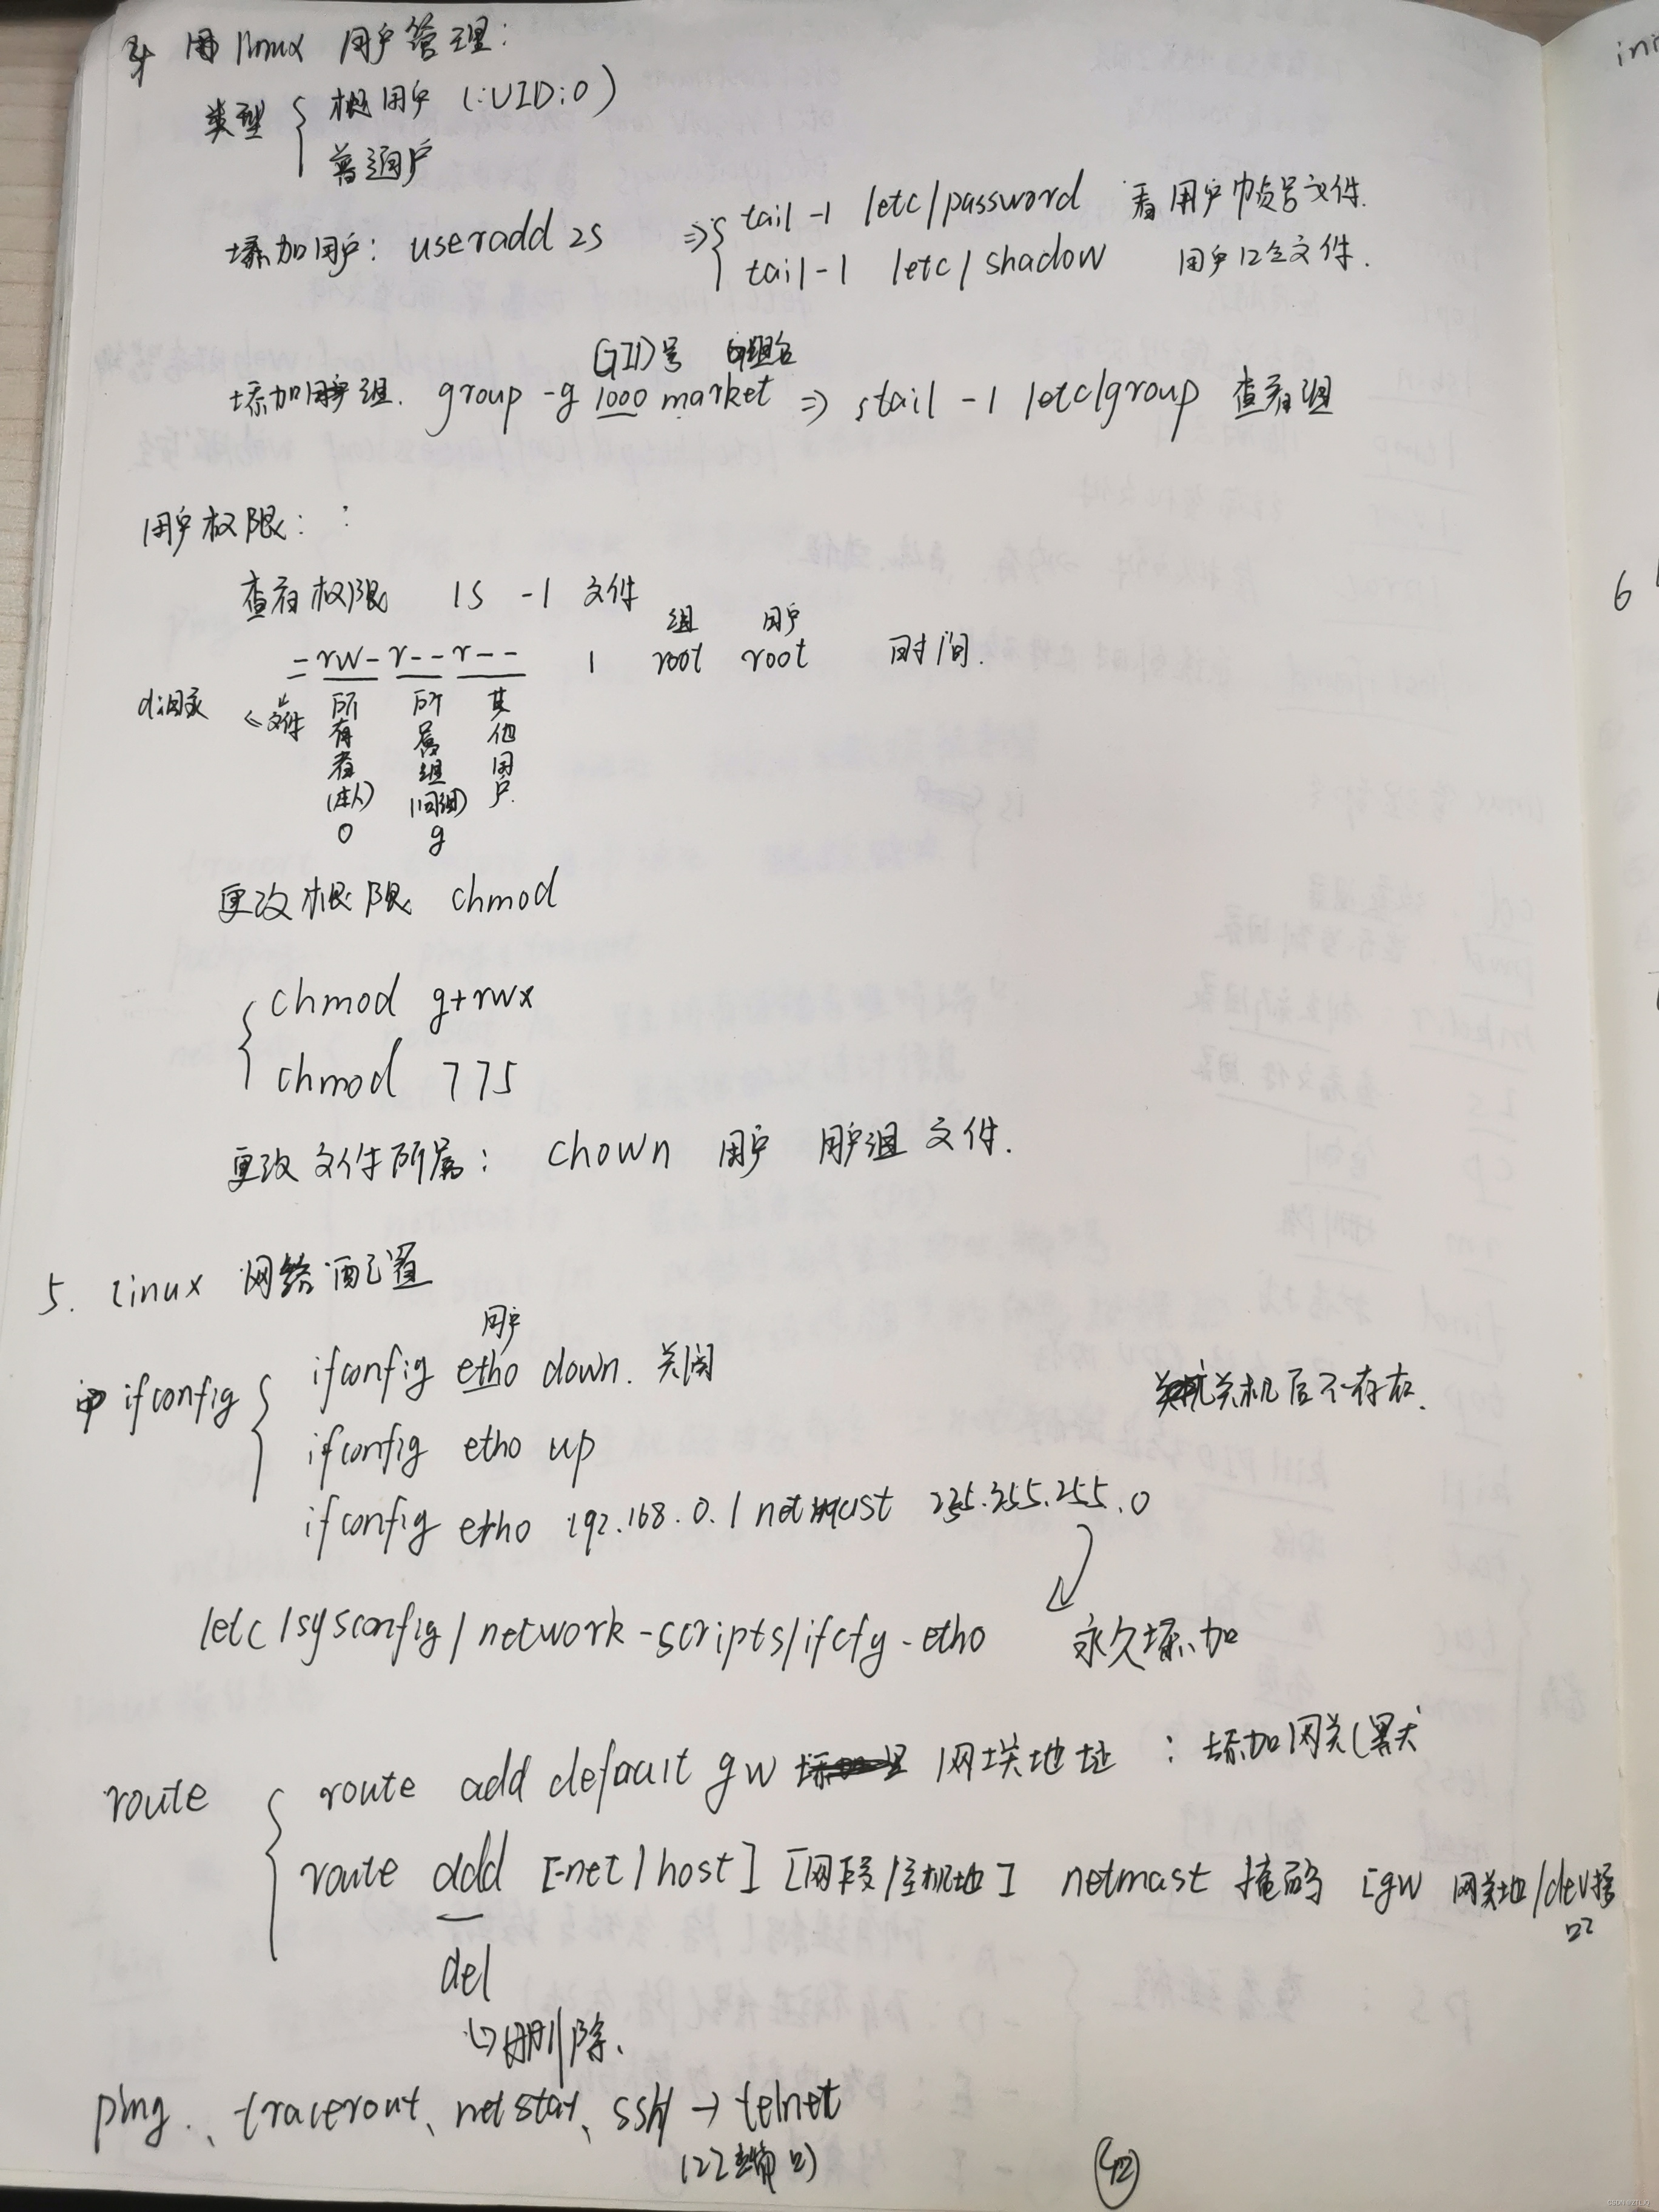 4 用 linux 用户管理:
类型 { 根用户 (:UID:0)
普通户
添加用户: useradd zs => { tail -1 /etc/password 看用户帐号文件.
tail -1 /etc/shadow 用户口令文件.
GID号 组名
添加用户组. group -g 1000 market => tail -1 /etc/group 查看组
用户权限: :
查看权限 ls -l 文件
组 用户
- rw- r-- r-- 1 root root 时间.
d:目录 <= 文件 所有者(主人) o 所属组(同组) g 其他用户.
更改根限 chmod
{ chmod g+rwx
chmod 775
更改文件所属: chown 用户 用户组 文件.
5. linux 网络配置
用户
ifconfig { ifconfig eth0 down. 关闭
关机后不存在.
ifconfig eth0 up
ifconfig eth0 192.168.0.1 netmast 255.255.255.0
/etc/sysconfig/network-scripts/ifcfg-eth0 永久添加
route { route add default gw 网关地址 : 添加网关(默
route add [-net/host] [网段/主机地] netmast 掩码 [gw 网关地/dev接口
del
↳删除.
ping、tracerout、netstat、ssh → telnet
(22端口)
CSDN @ZTLJQ